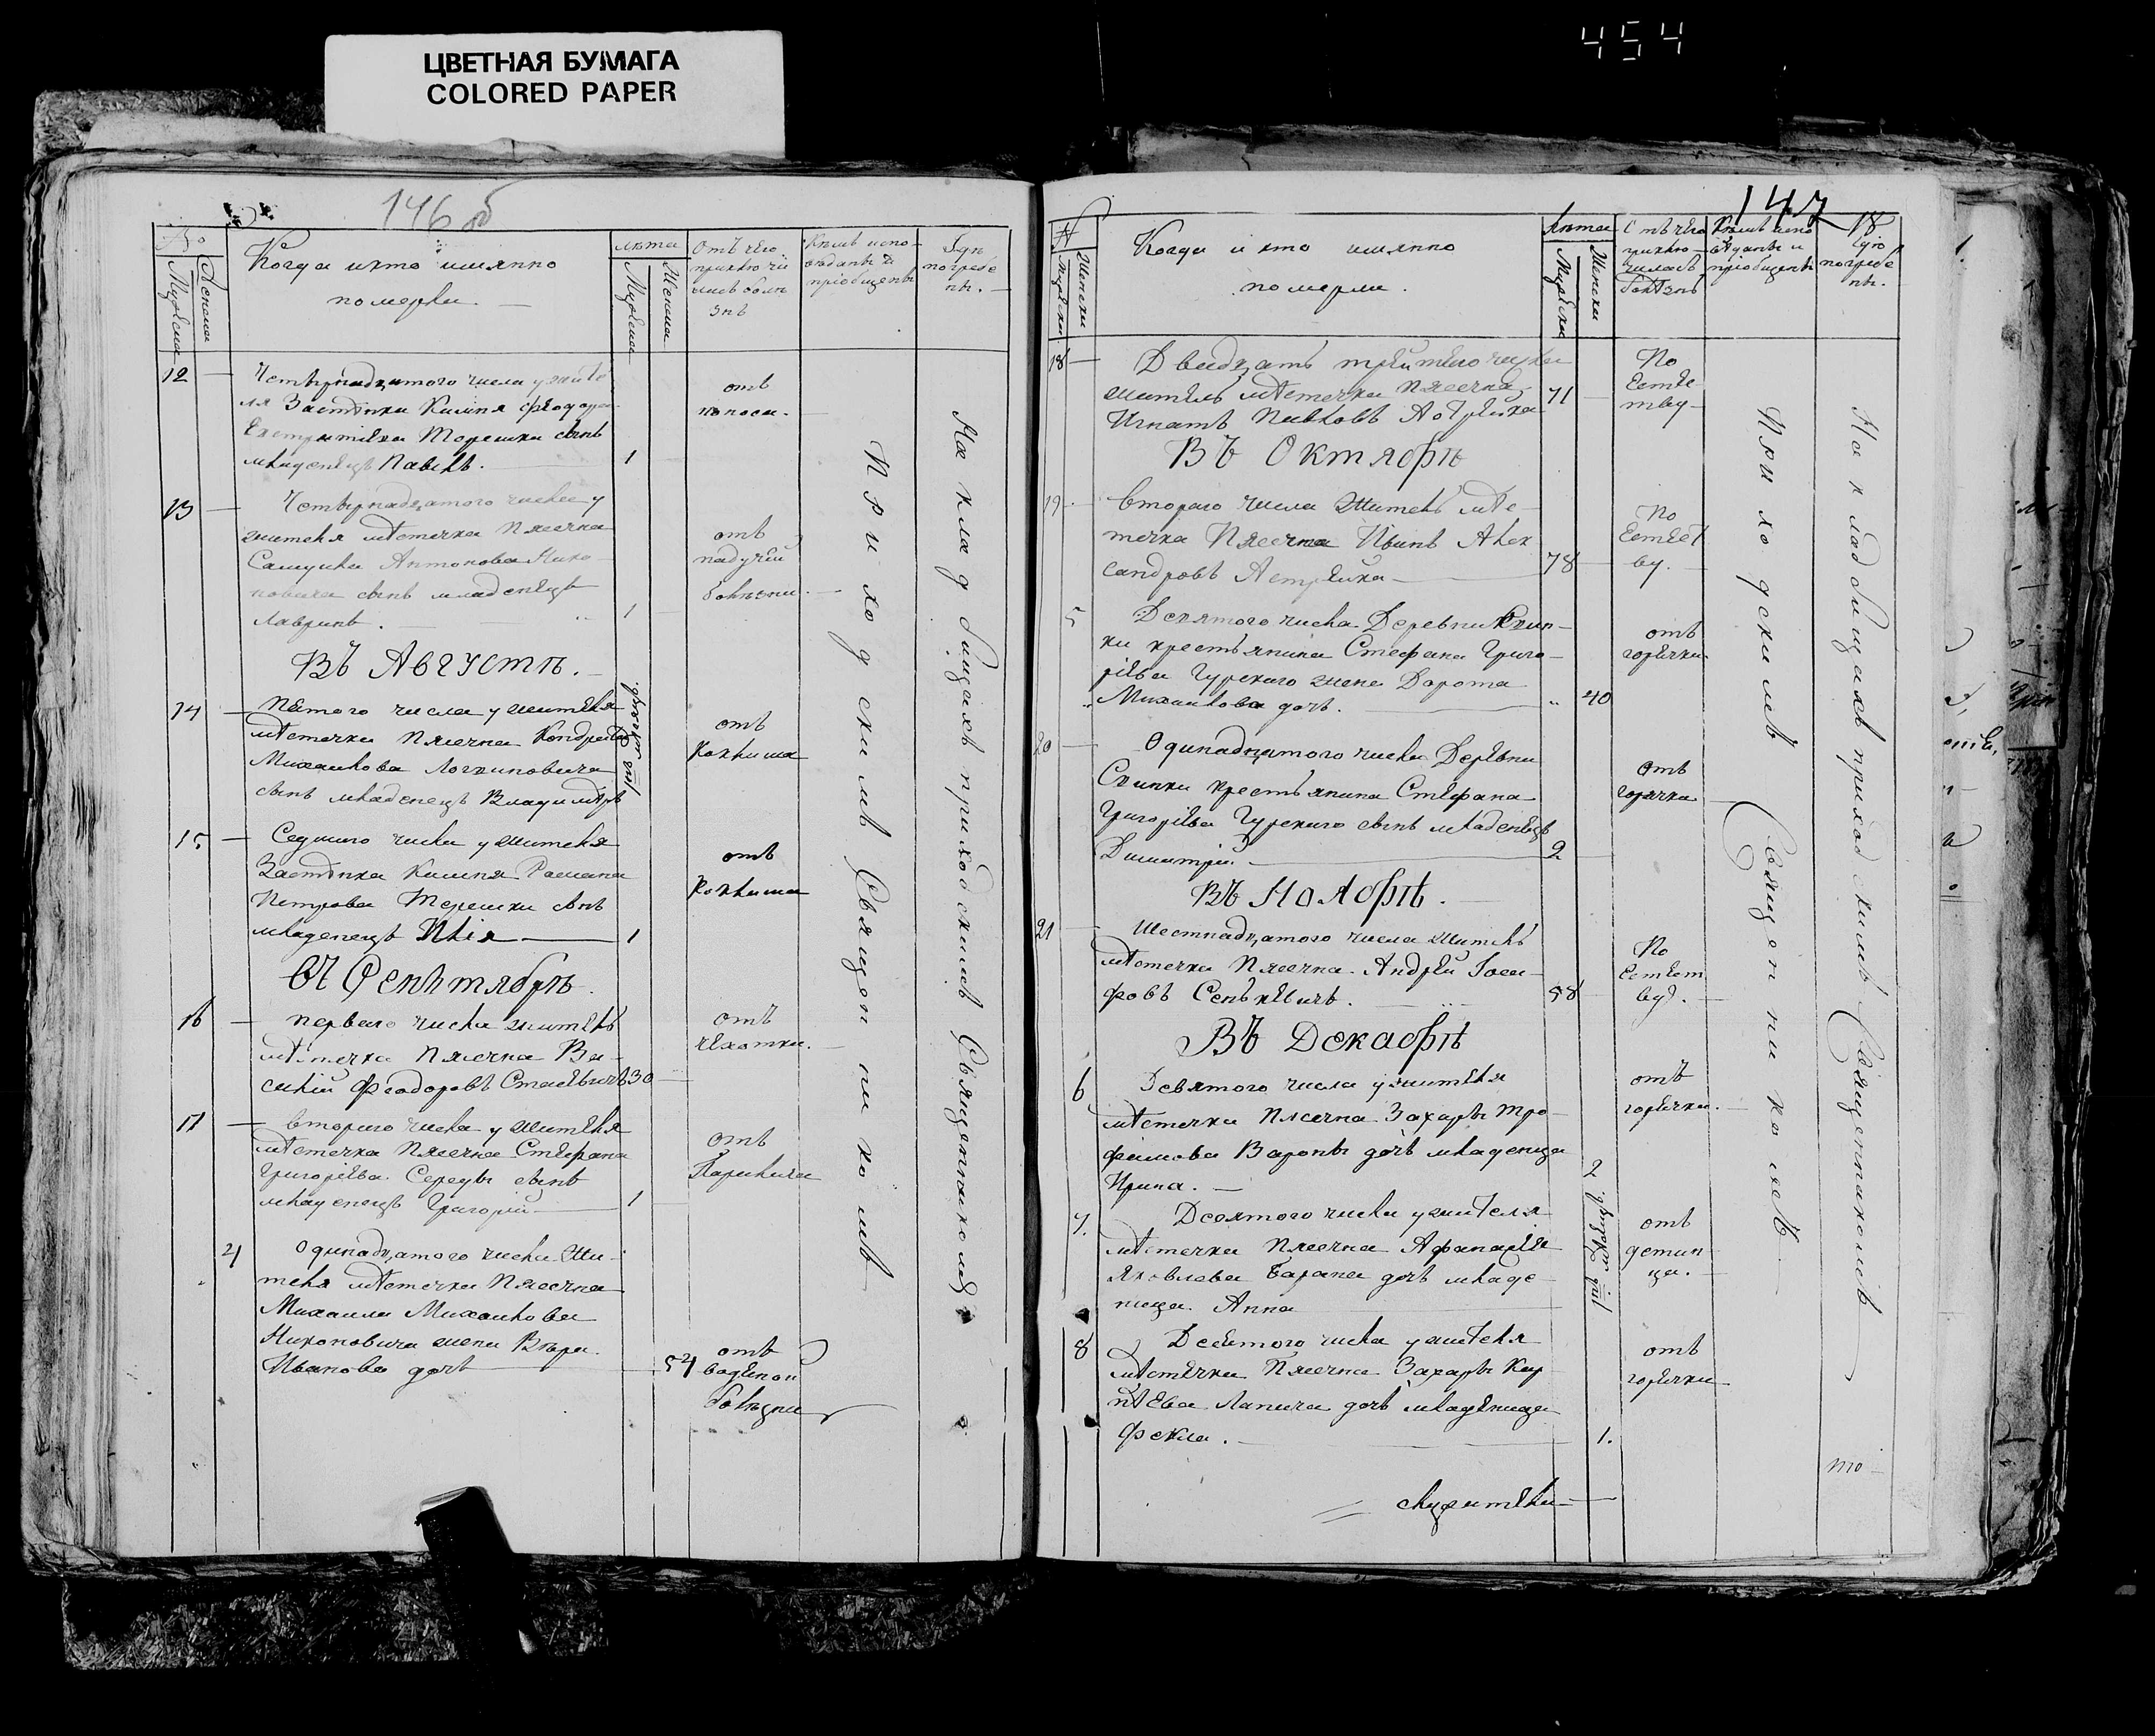 ЦВЕТНАЯ БУМАГА
COLORED PAPER
454
146 об
№
Мужеска
Женска
Когда и кто имянно
померли.
лѣта
Мужеска
Женска
Отъ чего
приключи
лась болѣ
знь
Кѣмъ испо-
вѣданъ и
пріобщенъ
Гдѣ
погребе
нъ.
12
Четырнадцатого числа у жите
ля Застѣнка Феодора
Терешки сынъ
младенецъ Павелъ.
1
отъ
поноса.
13
Четырнадцатого числа у
жителя мѣстечка Пясечна
Самуила Антонова Нико-
новича сынъ младенецъ
Лавринъ.
1
отъ
падучей
болѣзни.
Въ Августѣ.
14
Пятого числа у жителя
мѣстечка Пясечна Кондрата
Михаилова Логвиновича
сынъ младенецъ Владимѣръ
отъ
Коклиша
15
Седмого числа у жителя
Застѣнка Романа
Петрова Терешки сынъ
младенецъ Илія
1
отъ
Коклиша
Въ Сентябрѣ.
16
первого числа житель
мѣстечка Пясечна Ва-
силій Феодоровъ Стасевичъ
30
отъ
чехотки.
17
второго числа у жителя
мѣстечка Пясечна Стефана
Григоріева Середы сынъ
младенецъ Григорій
1
отъ
4
Одинадцатого числа Жи-
теля мѣстечка Пясечна
Михаила Михаилова
Никоновича жена Вѣра
Иванова дочь
54
отъ
водяной
болѣзни
Приходскимъ Священникомъ
На кладбищахъ приходскимъ Священникомъ
147
№
Мужески
Женски
Когда и кто имянно
померли.
Лѣта
Мужески
Женски
Отъ чего
приклю-
чилась
болѣзнь
Кѣмъ испо
вѣданъ и
пріобщенъ
Гдѣ
погребе
нъ.
18
Двадцать третьего числа
житель мѣстечка Пясечна
Игнатъ Павловъ
71
По
Естес
тву
Въ Октябрѣ
19
Второго числа Житель мѣс-
течка Пясечна Иванъ Алек
сандровъ Астрейка
78
По
Естест
ву.
5
Девятого числа Деревни Скин-
ки крестьянина Стефана Григо-
ріева Гурскаго жена Дорота
Михаилова дочь.
40
отъ
горячки
20
Одинадцатого числа Деревни
Скинки крестьянина Стефана
Григоріева Гурскаго сынъ младенецъ
Димитрій.
2
Отъ
горячки
Въ Ноябрѣ.
21
Шестнадцатого числа Житель
мѣстечка Пясечна Андрей Іоси-
фовъ Сенькевичъ.
58
По
Естест
ву.
Въ Декабрѣ
6
Девятого числа у жителя
мѣстечка Пясечна Захарія Тро-
фимова Вароны дочь младенца
Ирина.
2
отъ
горячки.
7.
Десятого числа у жителя
мѣстечка Пясечна Афанасія
Яковлева Барана дочь младе-
ница Анна
отъ
детин
ца.
8
Десятого числа у жителя
мѣстечка Пясечна Захарія Кар
пѣева Лапича дочь младеница
Фекла.
1.
отъ
горячки
Приходскимъ Священникомъ
На кладбищахъ приходскимъ Священникомъ